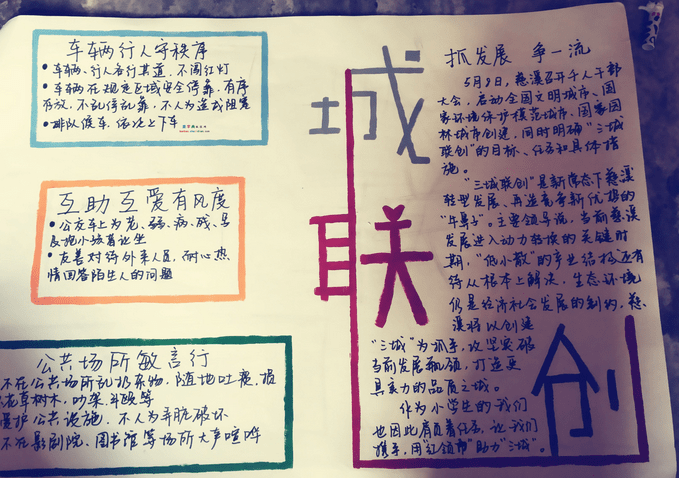 车辆行人守秩序
• 车辆、行人各行其道,不闯红灯
• 车辆在规定区域安全停靠,有序
停放,不乱停乱靠,不人为造成阻塞
• 排队候车,依次上下车
互助互爱有风度
• 公交车上为老、弱、病、残、孕
及抱小孩者让坐
• 友善对待外来人员,耐心热
情回答陌生人的问题
公共场所敏言行
不在公共场所乱扔杂物,随地吐痰,损
花草树木,吵架、斗殴等
爱护公共设施,不人为弄脏破坏
不在影剧院、图书馆等场所大声喧哗
三城
联
创
抓发展 争一流
5月8日,慈溪召开千人干部
大会,启动全国文明城市、国
家环境保护模范城市、国家园
林城市创建,同时明确“三城
联创”的目标、任务和具体措
施。
“三城联创”是新常态下慈溪
转型发展、再造竞争新优势的
“牛鼻子”。主要领导说,当前慈溪
发展进入动力转换的关键时
期,“低小散”的产业结构还有
待从根本上解决,生态环境
仍是经济社会发展的制约,慈
溪将以创建
“三城”为抓手,攻坚突破
当前发展瓶颈,打造更
具实力的品质之城。
作为小学生的我们
也因此肩负着任务,让我们
携手,用“红领巾”助力“三城”。